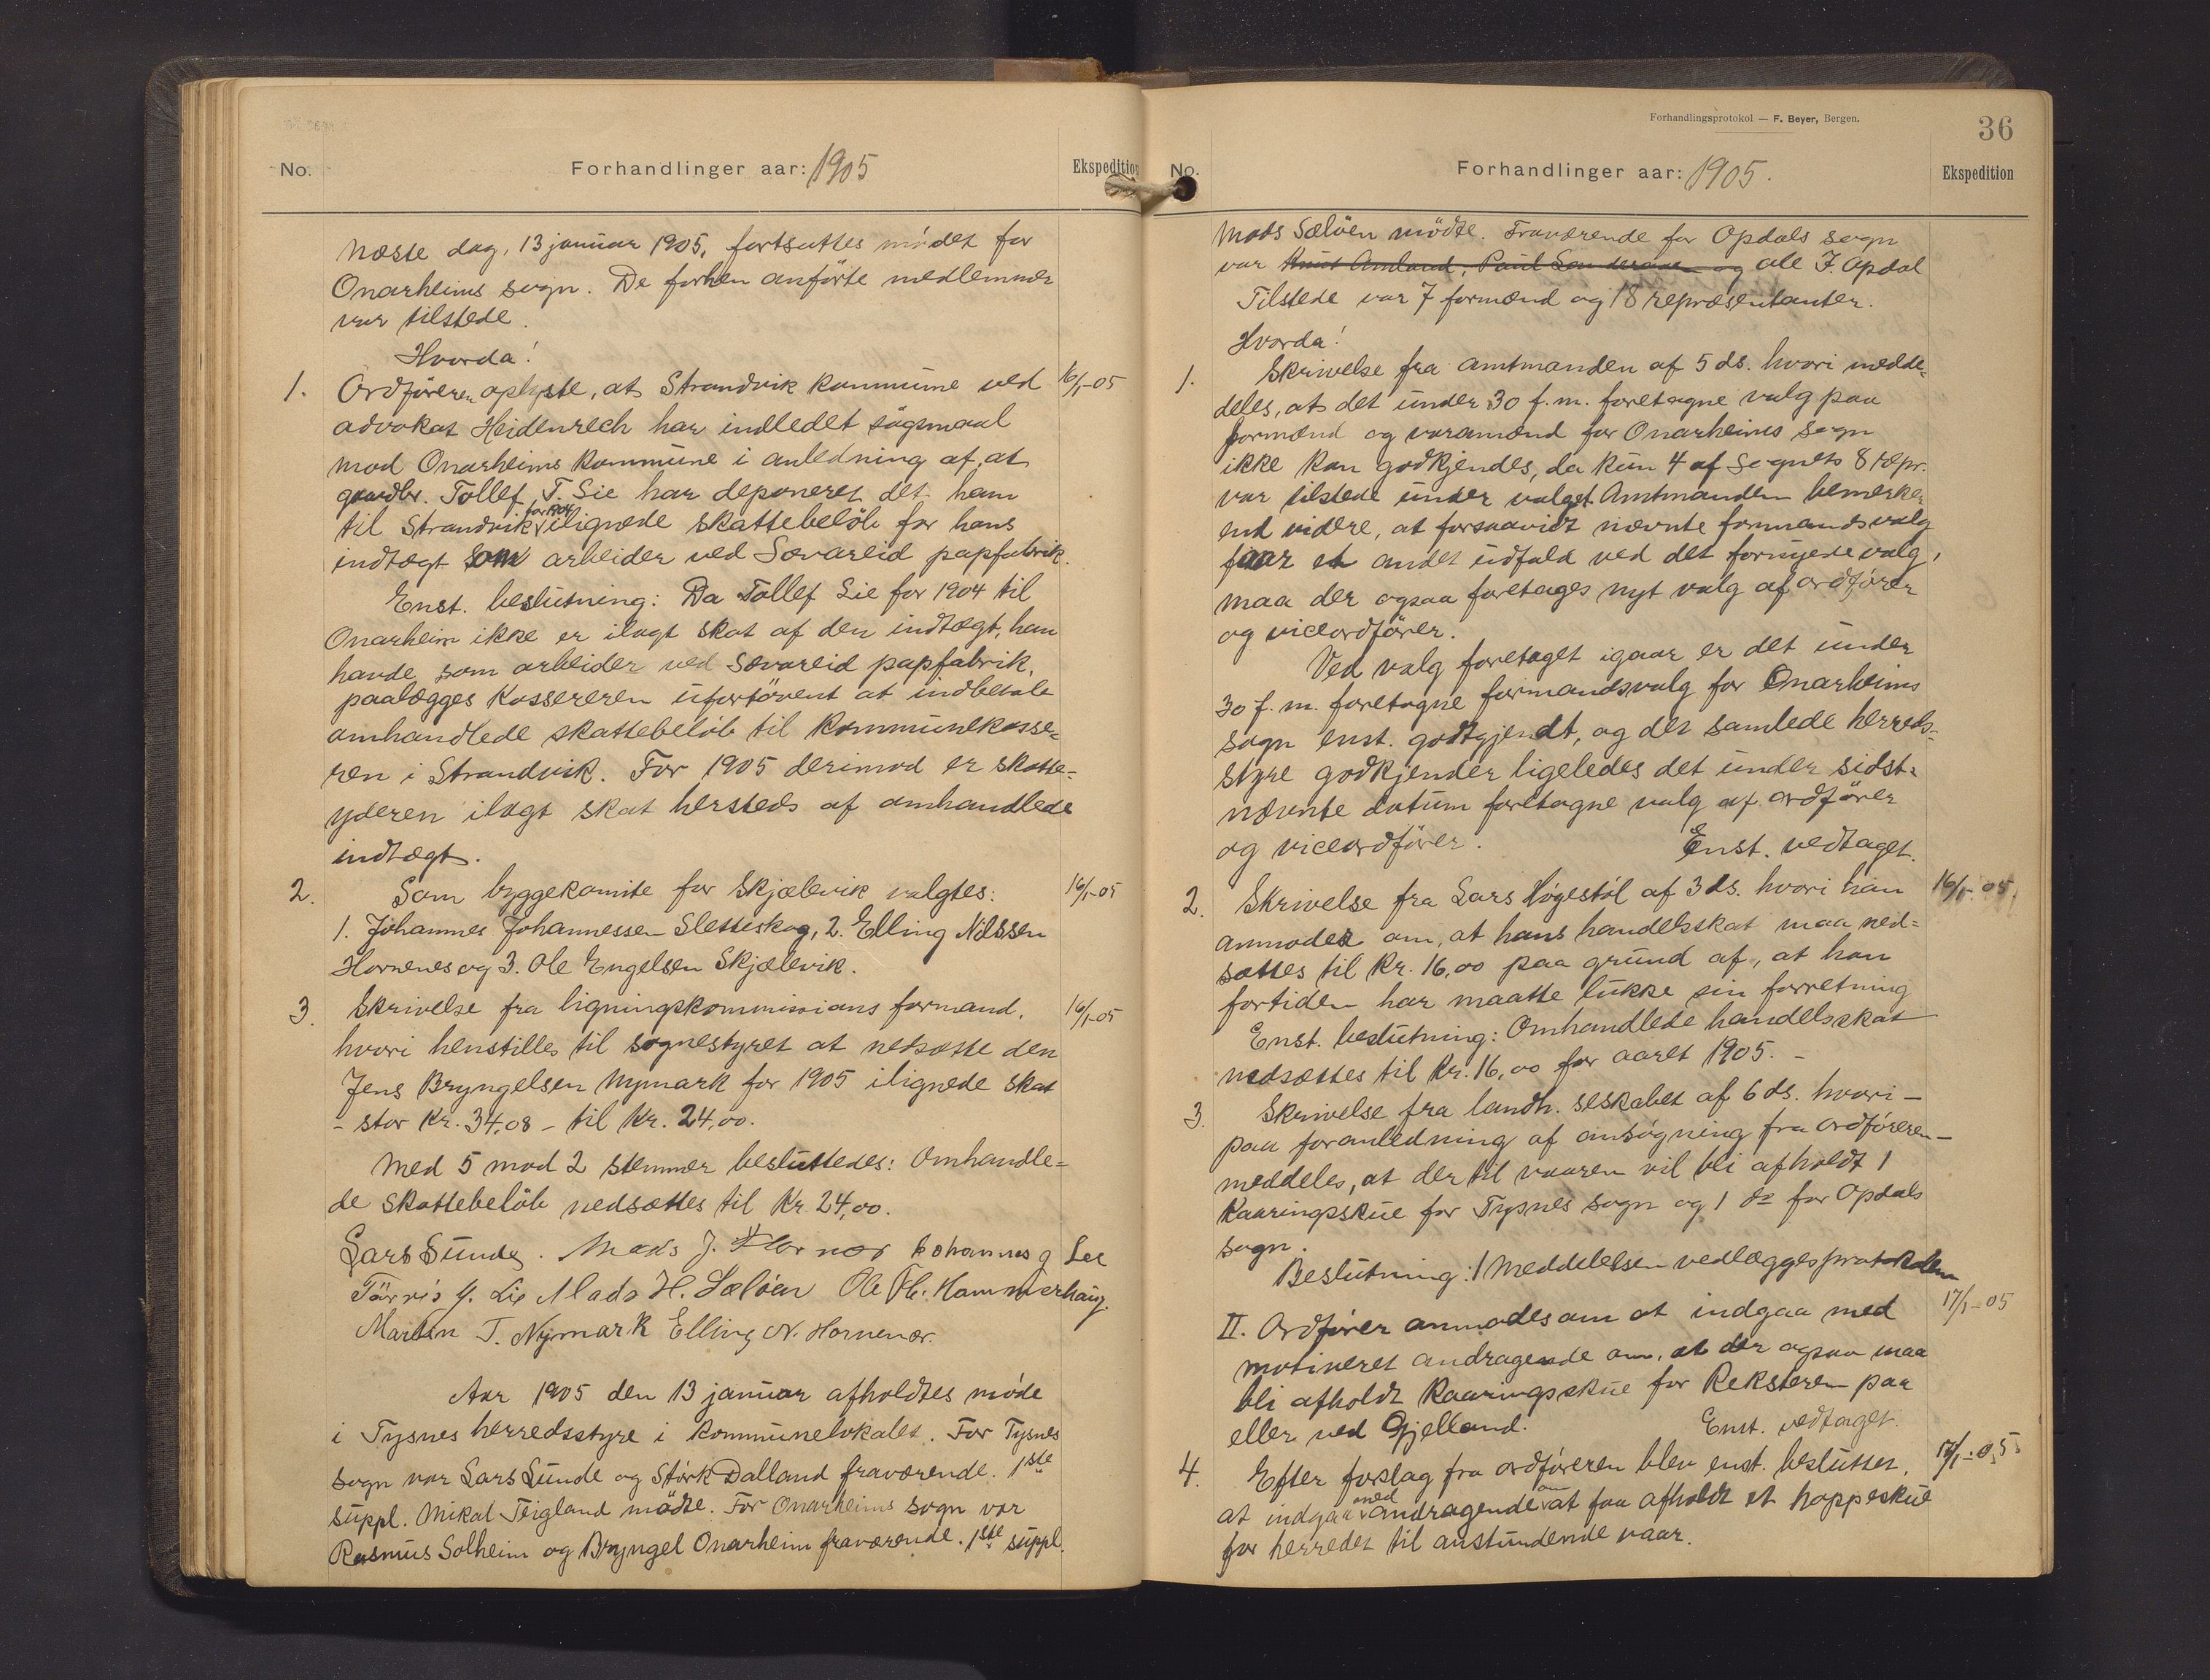 No.
Forhandlinger aar: 1905
Ekspedition
Næste dag, 13 januar 1905, fortsattes mödet for
Onarheims sogn. De forhen anförte medlemmer
var tilstede.
Hvorda!
1. Ordföreren oplyste, at Strandvik kommune ved 16/1-05
advokat Heidenrech har indledet sögsmaal
mod Onarheims kommune i anledning af, at
gaardbr. Tollef T. Lie har deponeret det ham
til Strandvik for 1904 ilignede skattebelöb for hans
indtægt som arbeider ved Sævareid papfabrik.
Enst. beslutning: Da Tollef Lie for 1904 til
Onarheim ikke er ilagt skat af den indtægt, han
havde som arbeider ved Sævareid papfabrik,
paalægges kassereren ufortövent at indbetale
omhandlede skattebelöb til kommunekasse-
ren i Strandvik. For 1905 derimod er skatte-
yderen ilagt skat hersteds af omhandlede
indtægt.
2. Som byggekomite for Skjælevik valgtes: 16/1-05
1. Johannes Johannessen Sletteskog, 2. Elling Nilssen
Hornenes og 3. Ole Engelsen Skjælevik.
3. Skrivelse fra ligningskommissions formand, 16/1-05
hvori henstilles til sognestyret at nedsætte den
Jens Bryngelsen Nymark for 1905 ilignede skat
- stor Kr. 34,08 - til Kr. 24,00.
Med 5 mod 2 stemmer besluttedes: Omhandle-
de skattebelöb nedsættes til Kr 24,00.
Lars Sunde. Mads J. Hornes Johannes J Lie
Tørris J. Lie Mads H. Sælöen Ole Fh. Hammerhaug.
Marten T. Nymark Elling N. Hornenes.
Aar 1905 den 13 januar afholdtes möde
i Tysnes herredsstyre i kommunelokalet. For Tysnes
sogn var Lars Sunde og Störk Dalland fraværende. 1ste
suppl. Mikal Teigland mödte. For Onarheims sogn var
Rasmus Solheim og Bryngel Onarheim fraværende. 1ste suppl.
Forhandlingsprotokol — F. Beyer, Bergen.
36
No.
Forhandlinger aar: 1905.
Ekspedition
Mads Sælöen mödte. Fraværende for Opdals sogn
var Knut Amland, Paul Sandersen og Ole J. Opdal
Tilstede var 7 formænd og 18 repræsentanter.
Hvorda!
1. Skrivelse fra amtmanden af 5 ds. hvori medde-
deles, at det under 30 f. m. foretagne valg paa
formænd og varamænd for Onarheims sogn
ikke kan godkjendes, da kun 4 af sognets 8 repr.
var tilstede under valget. Amtmanden bemerker
end videre, at forsaavidt nævnte formandsvalg
faar et andet udfald ved det fornyede valg,
maa der ogsaa foretages nyt valg af ordförer
og viceordförer.
Ved valg foretaget igaar er det under
30 f. m. foretagne formandsvalg for Onarheims
sogn enst. godtgjendt, og det samlede herreds-
styre godkjender ligeledes det under sidst-
nævnte datum foretagne valg af ordförer
og viceordförer. Enst. vedtaget.
2. Skrivelse fra Lars Høgestøl af 3 ds. hvori han 16/1-05.
anmoder om, at hans handelsskat maa ned-
sættes til Kr. 16,00 paa grund af, at han
fortiden har maatte lukke sin forretning
Enst. beslutning: Omhandlede handelsskat
nedsættes til Kr. 16,00 for aaret 1905. -
3. Skrivelse fra landh. selskabet af 6 ds. hvori -
paa foranledning af ansögning fra ordföreren -
meddeles, at der til vaaren vil bli afholdt 1
kaaringsskue for Tysnes sogn og 1 do for Opdals
sogn.
Beslutning: I Meddelelsen vedlægges protokolen
II. Ordförer anmodes om at indgaa med 17/1-05
motiveret andragende om, at der ogsaa maa
bli afholdt kaaringsskue for Reksteren paa
eller ved Gjelland. Enst. vedtaget.
4. Efter forslag fra ordföreren blev enst. besluttet, 17/1-05
at indgaa med andragende om at faa afholdt et hoppeskue
for herredet til anstundende vaar.